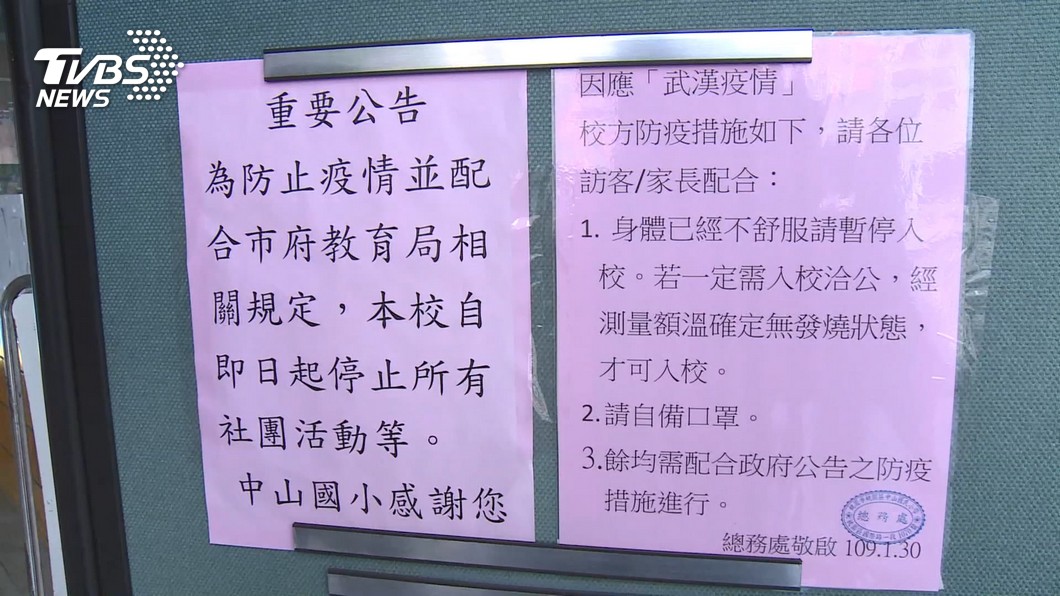 TVBS
NEWS
重要公告
為防止疫情並配
合市府教育局相
關規定，本校自
即日起停止所有
社團活動等。
中山國小感謝您
因應「武漢疫情」
校方防疫措施如下，請各位
訪客/家長配合：
1. 身體已經不舒服請暫停入
校。若一定需入校洽公，經
測量額溫確定無發燒狀態，
才可入校。
2.請自備口罩。
3.餘均需配合政府公告之防疫
措施進行。
總務處
總務處敬啟 109.1.30